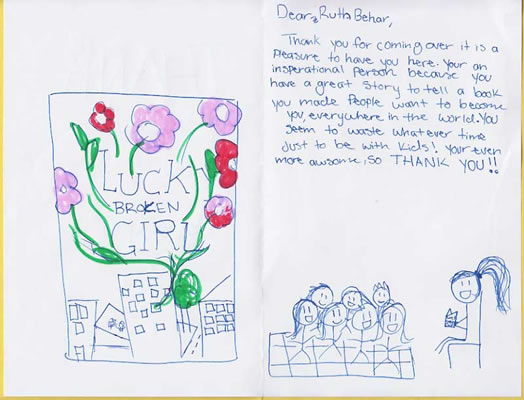 LUCKY
BROKEN
GIRL
Dear, Ruth Behar,
Thank you for coming over it is a
pleasure to have you here. Your an
insperational person because you
have a great story to tell a book
you made People want to become
you, everywhere in the world. You
seem to waste whatever time
just to be with kids! Your even
more awsome, so THANK YOU!!